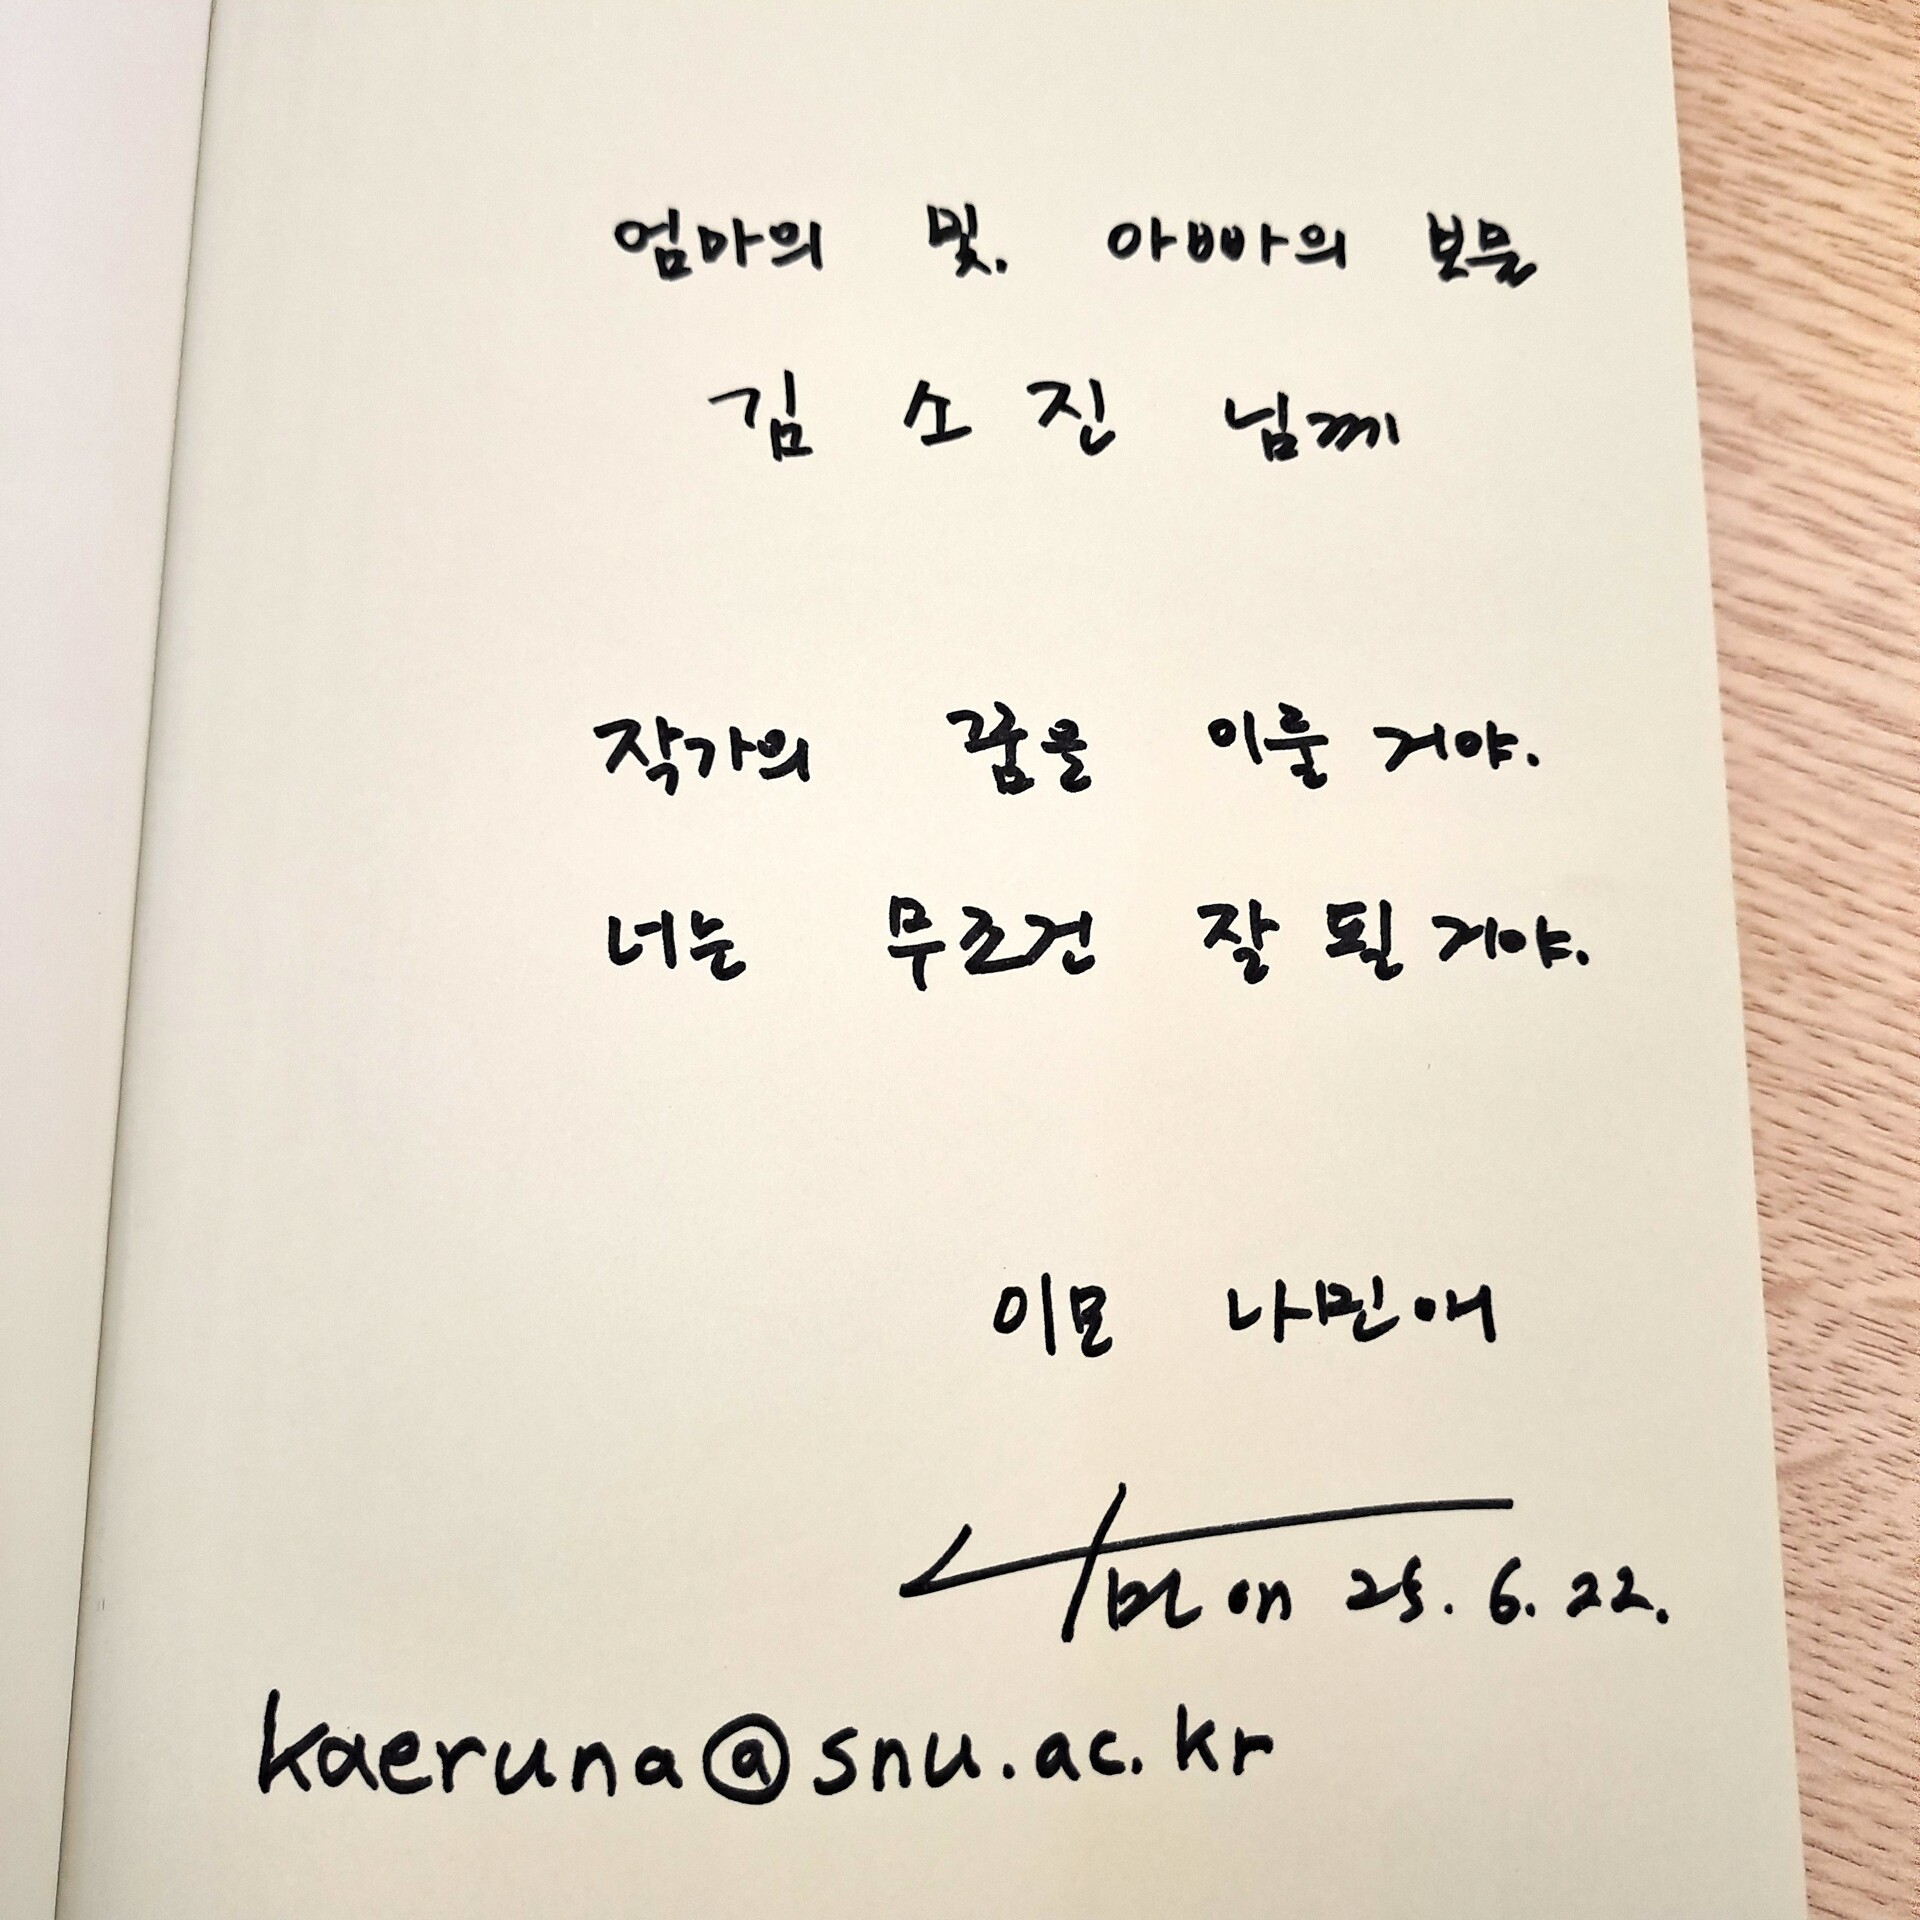 엄마의 빛. 아빠의 보물
김 소 진 님께
작가의 꿈을 이룰 거야.
너는 무조건 잘 될 거야.
이모 나민애
on 25. 6. 22.
kaeruna@snu.ac.kr